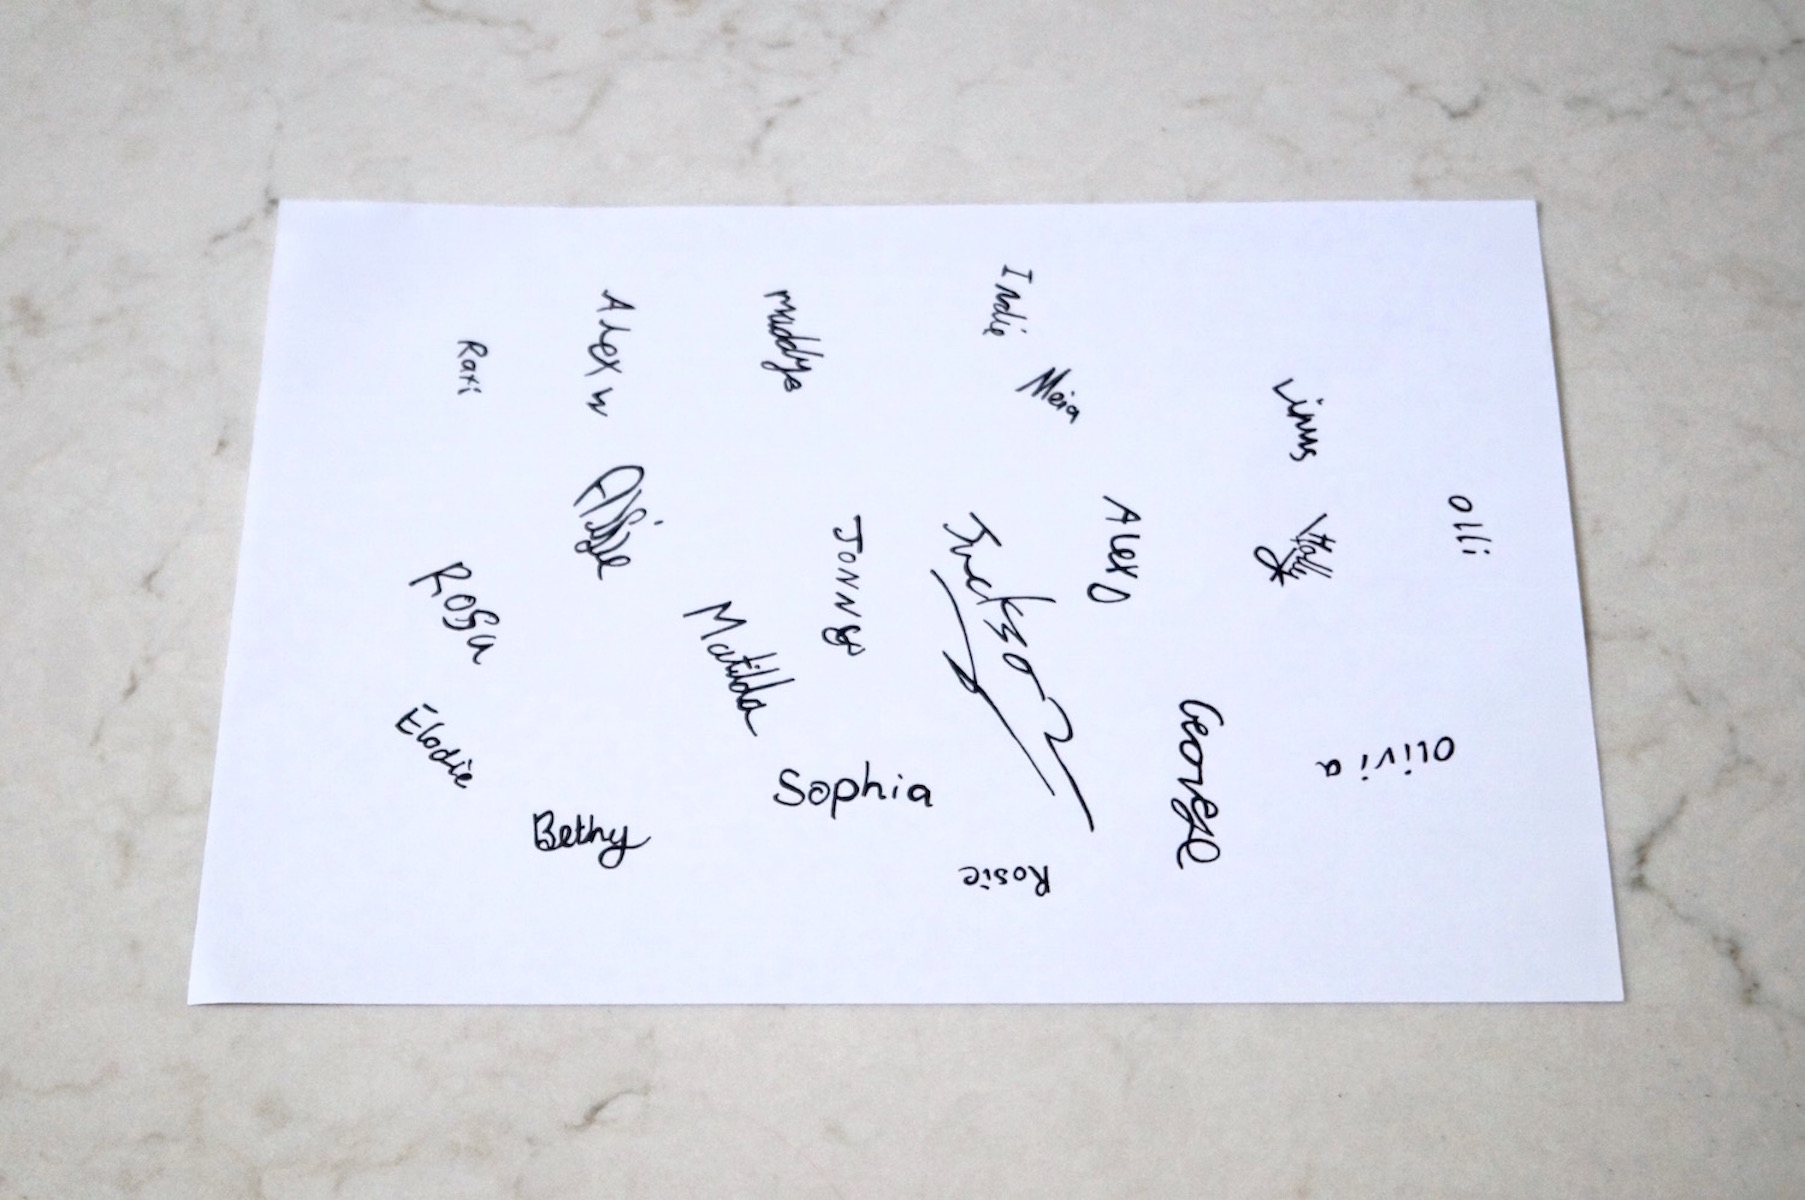 Indie
Alex W
Meia
Linus
Olli
Holly
Alex D
Jonny
Jackson
Rosa
Matilda
Elodie
George
Olivia
Sophia
Bethy
Rosie